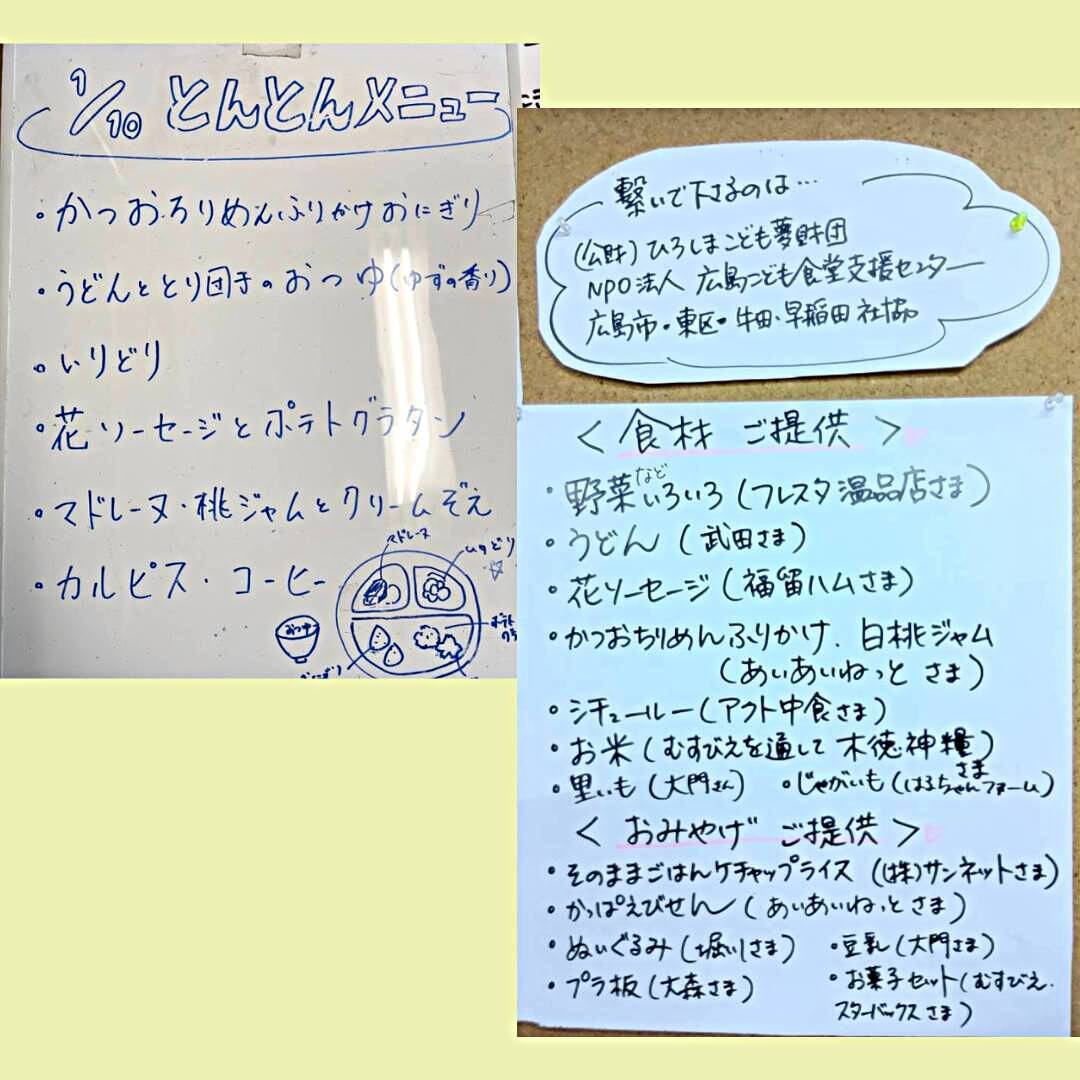 1/10 とんとんメニュー
・かつおちりめんふりかけおにぎり
・うどんととり団子のおつゆ(ゆずの香り)
・いりどり
・花ソーセージとポテトグラタン
・マドレーヌ・桃ジャムとクリームぞえ
・カルピス・コーヒー
マドレーヌ
いりどり
おつゆ
ポテト
グラ
繋いで下さるのは…
(公財)ひろしまこども夢財団
NPO法人 広島こども食堂支援センター
広島市・東区・牛田・早稲田社協
<食材 ご提供>
・野菜などいろいろ(フレスタ温品店さま)
・うどん(武田さま)
・花ソーセージ(福留ハムさま)
・かつおちりめんふりかけ、白桃ジャム
(あいあいねっと さま)
・シチュールー(アクト中食さま)
・お米(むすびえを通して木徳神糧さま)
・里いも(大門さん) ・じゃがいも(はるちゃんファーム)
<おみやげ ご提供>
・そのままごはんケチャップライス((株)サンネットさま)
・かっぱえびせん(あいあいねっとさま)
・ぬいぐるみ(堀いしさま) ・豆乳(大門さま)
・プラ板(大森さま) ・お菓子セット(むすびえ.
スターバックスさま)